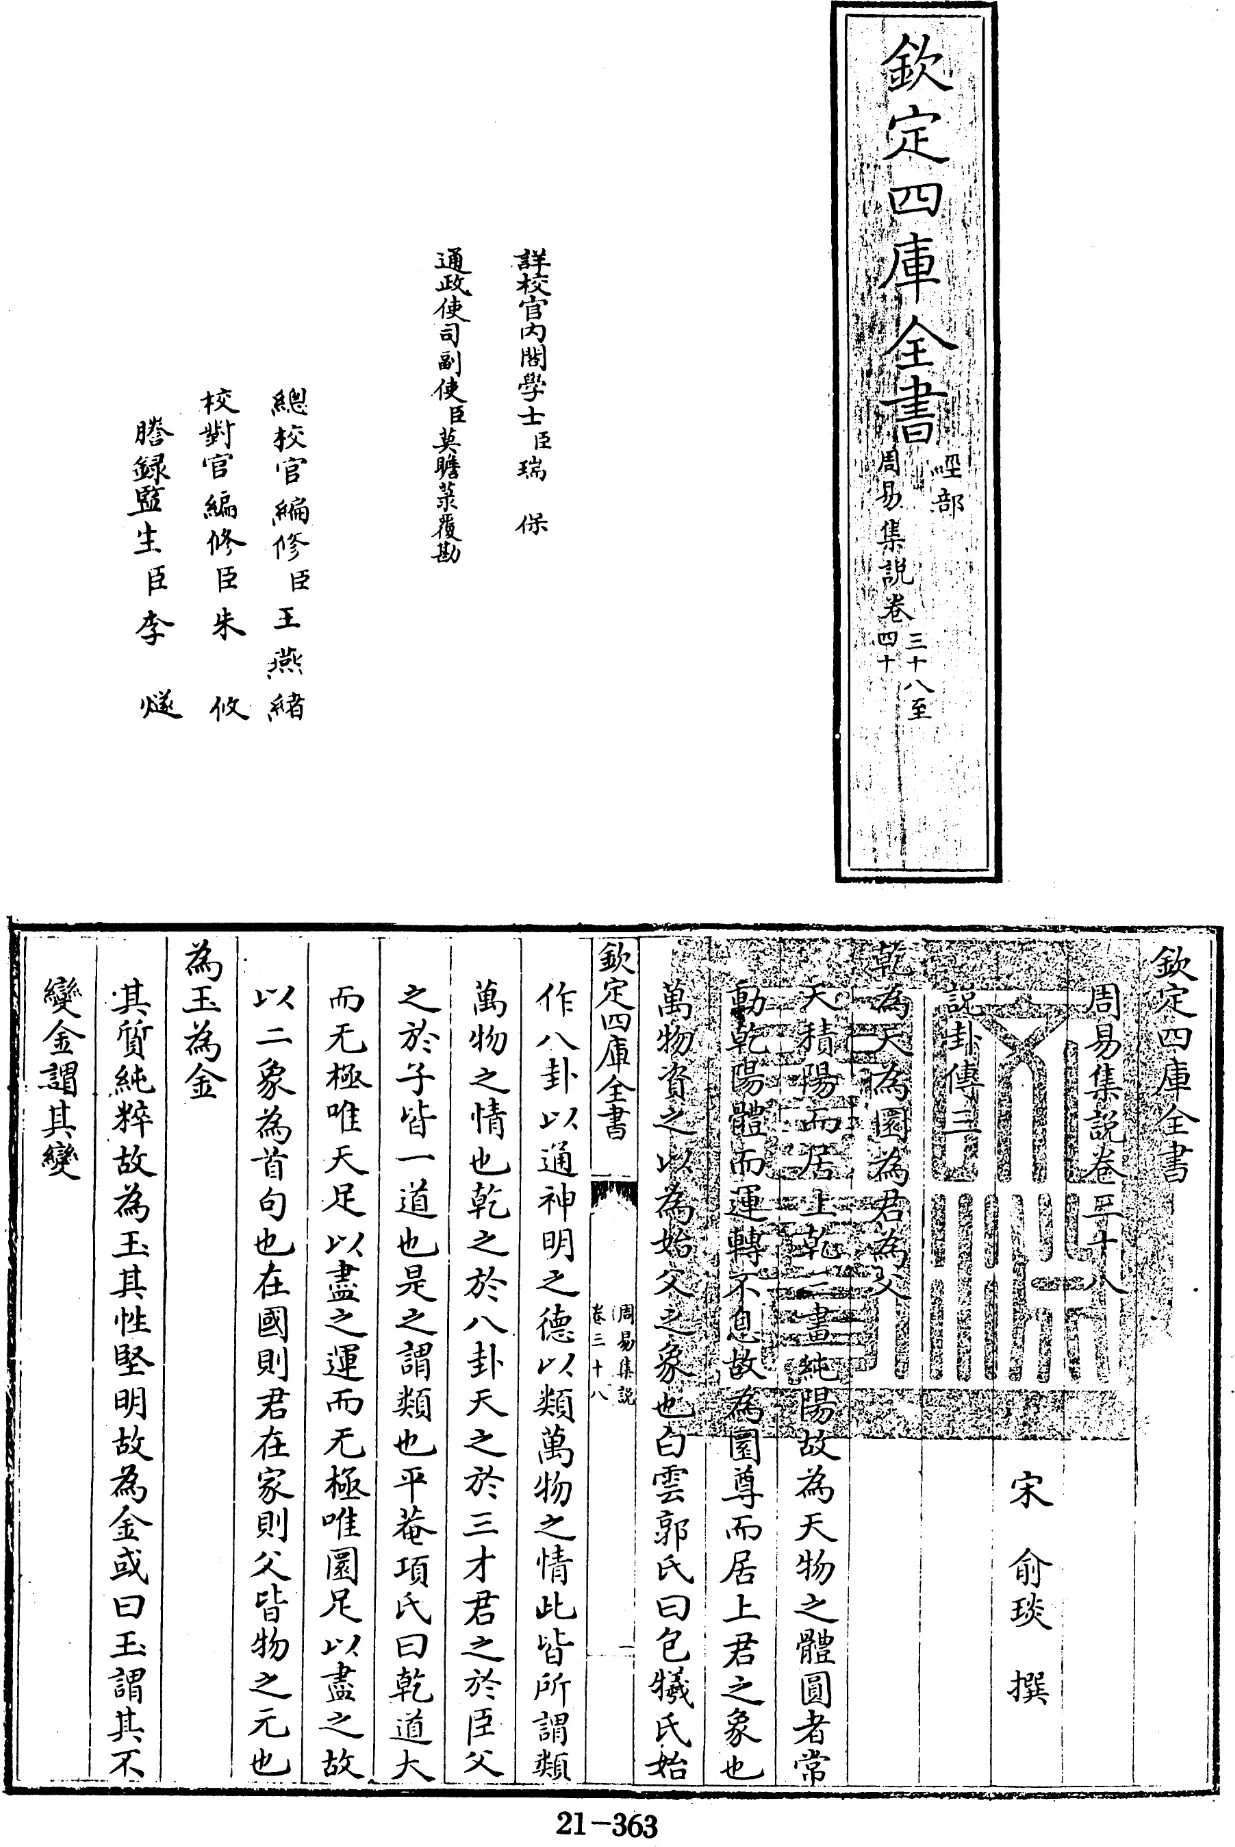 欽定四庫全書
經部
周易集說卷三十八至四十
詳校官內閣學士臣瑞保
通政使司副使臣莫瞻菉覆勘
總校官編修臣王燕緒
校對官編修臣朱攸
謄錄監生臣李燧
欽定四庫全書
周易集說卷三十八
宋俞琰撰
說卦傳三
乾為天為圜為君為父
天積陽而居上乾三畫純陽故為天物之體圓者常
動乾陽體而運轉不息故為圜尊而居上君之象也
萬物資之以為始父之象也白雲郭氏曰包犧氏始
欽定四庫全書
周易集說
卷三十八
一
作八卦以通神明之德以類萬物之情此皆所謂類
萬物之情也乾之於八卦天之於三才君之於臣父
之於子皆一道也是之謂類也平菴項氏曰乾道大
而无極唯天足以盡之運而无極唯圜足以盡之故
以二象為首句也在國則君在家則父皆物之元也
為玉為金
其質純粹故為玉其性堅明故為金或曰玉謂其不
變金謂其變
21-363